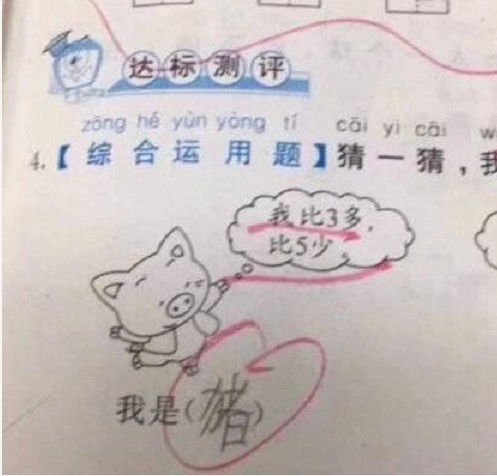 达标测评
zōng hé yùn yòng tí cāi yi cāi
4.【综合运用题】猜一猜，我
我比3多，
比5少。
我是(猪)